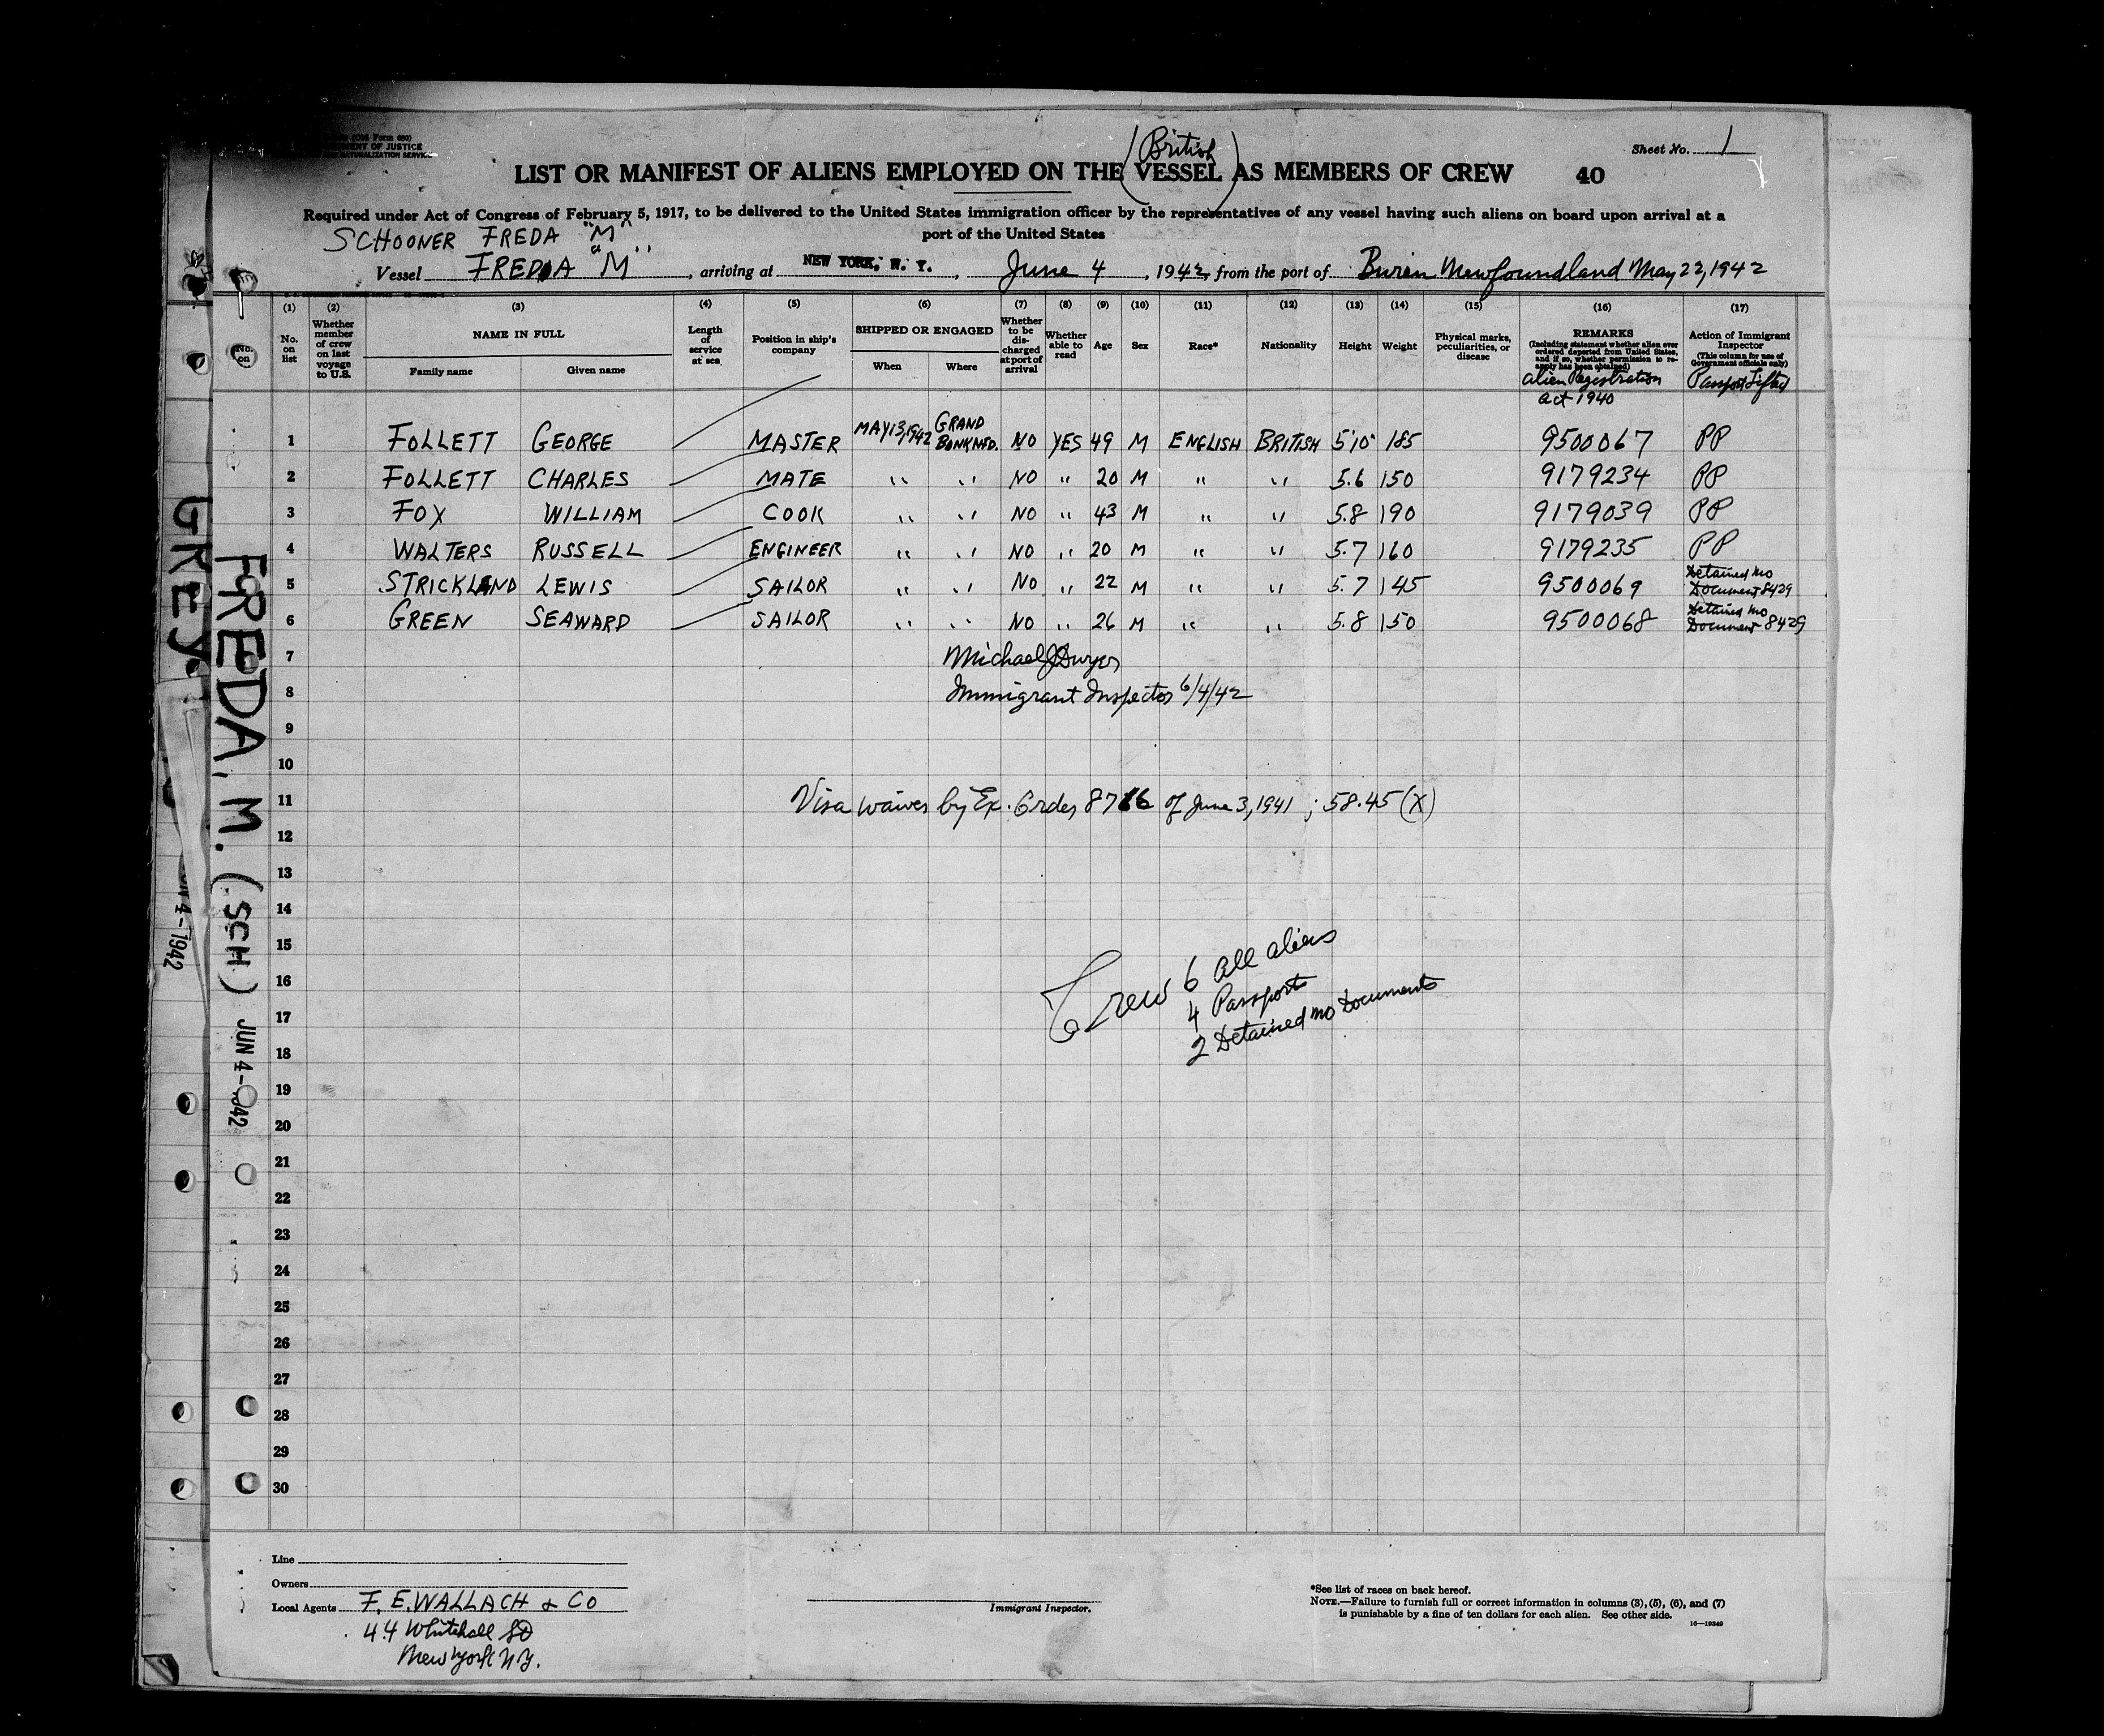 (Old Form 680)
DEPARTMENT OF JUSTICE
NATURALIZATION SERVICE
Sheet No. 1
(British)
LIST OR MANIFEST OF ALIENS EMPLOYED ON THE VESSEL AS MEMBERS OF CREW 40
Required under Act of Congress of February 5, 1917, to be delivered to the United States immigration officer by the representatives of any vessel having such aliens on board upon arrival at a
port of the United States
SCHOONER FREDA "M"
Vessel FREDA "M", arriving at NEW YORK, N. Y., June 4, 1942, from the port of Burin Newfoundland May 22, 1942
(1) (2) (3) (4) (5) (6) (7) (8) (9) (10) (11) (12) (13) (14) (15) (16) (17)
No. on
No. on list
Whether member of crew on last voyage to U.S.
NAME IN FULL
Family name
Given name
Length of service at sea
Position in ship's company
SHIPPED OR ENGAGED
When
Where
Whether to be discharged at port of arrival
Whether able to read
Age
Sex
Race*
Nationality
Height
Weight
Physical marks, peculiarities, or disease
REMARKS
(Including statement whether alien ever ordered deported from United States, and if so, whether permission to re-apply has been obtained)
Alien Registration
Act 1940
Action of Immigrant Inspector
(This column for use of Government officials only)
Passport Lifted
1 FOLLETT GEORGE MASTER MAY 13, 1942 GRAND BANK NFD. NO YES 49 M ENGLISH BRITISH 5'10" 185 9500067 PP
2 FOLLETT CHARLES MATE " " NO " 20 M " " 5.6 150 9179234 PP
3 FOX WILLIAM COOK " " NO " 43 M " " 5.8 190 9179039 PP
4 WALTERS RUSSELL ENGINEER " " NO " 20 M " " 5.7 160 9179235 PP
5 STRICKLAND LEWIS SAILOR " " NO " 22 M " " 5.7 145 9500069 Detained No Document 8429
6 GREEN SEAWARD SAILOR " " NO " 26 M " " 5.8 150 9500068 Detained No Document 8429
7 Michael J Dwyer
8 Immigrant Inspector 6/4/42
9
10
11 Visa waiver by Ex. Order 8766 of June 3, 1941 ; 58.45 (X)
12
13
14
15 Crew 6 All aliens
16 4 Passports
17 2 Detained no Documents
18
19
20
21
22
23
24
25
26
27
28
29
30
GREY.
FREDA, M. (SCH) JUN 4-1942
4-1942
Line
Owners
Local Agents F. E. WALLACH & CO
44 Whitehall St
New York N.Y.
Immigrant Inspector.
*See list of races on back hereof.
NOTE.—Failure to furnish full or correct information in columns (3), (5), (6), and (7)
is punishable by a fine of ten dollars for each alien. See other side.
16—19349